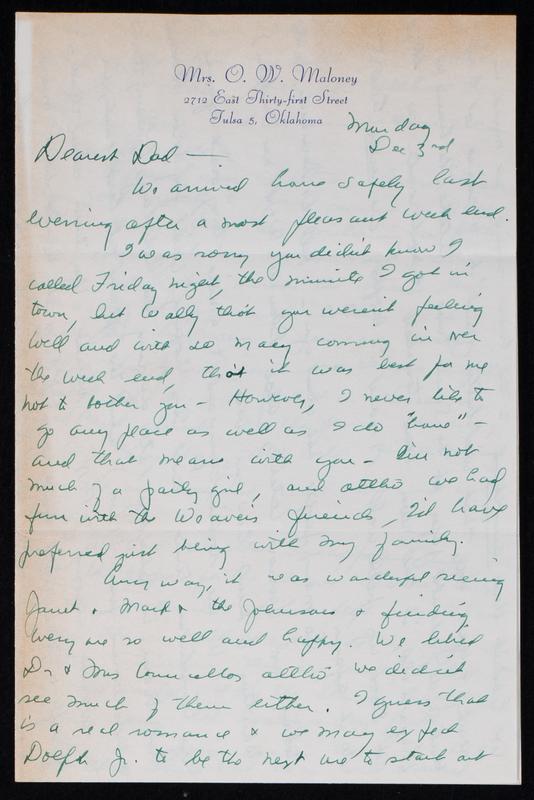 Mrs. O. W. Maloney
2712 East Thirty-first Street
Tulsa 5, Oklahoma
Monday
Dec 3rd
Dearest Dad —
We arrived home safely last
evening after a most pleasant week end.
I was sorry you didn't know I
called Friday night, the minute I got in
town, but Wally that you weren't feeling
well and with so many coming in over
the week end, that it was best for me
not to bother you — However, I never like to
go any place as well as I do "home" —
and that means with you — I'm not
much of a party girl, and altho we had
fun with the Weaver's friends, I'd have
preferred just being with my family.
Any way, it was wonderful seeing
Janet & Mark & the Johnsons & finding
every one so well and happy. We liked
Dr & Mrs altho we didn't
see much of them either. I guess that
is a real romance & we may expect
Dolph Jr. to be the next one to start out